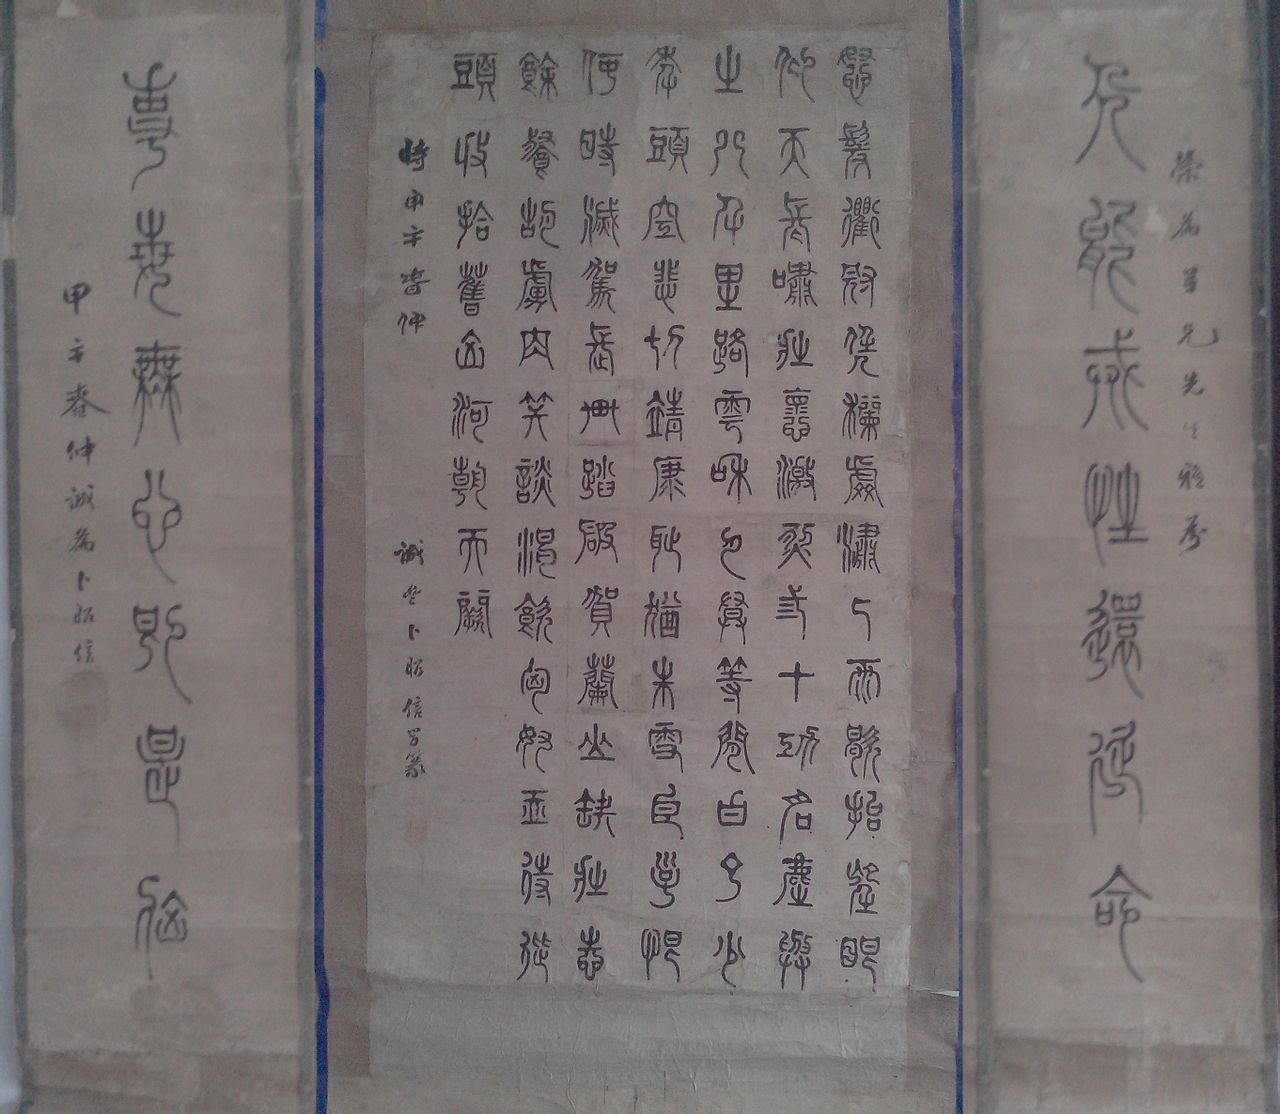 能性還命
兄先生雅
怒髮衝冠凭欄處潚〻雨歇抬望眼
仰天長嘯壯懷激烈三十功名塵與
土八千里路雲和月莫等閒白了少
年頭空悲切靖康恥猶未雪臣子恨
何時滅駕長車踏破賀蘭山缺壯志
餘餐胡虜肉笑談渴飲匈奴血待從
頭收拾舊山河朝天闕
時甲子春仲
誠卜昭信學篆
無心即是仙
甲子春仲誠為卜昭信